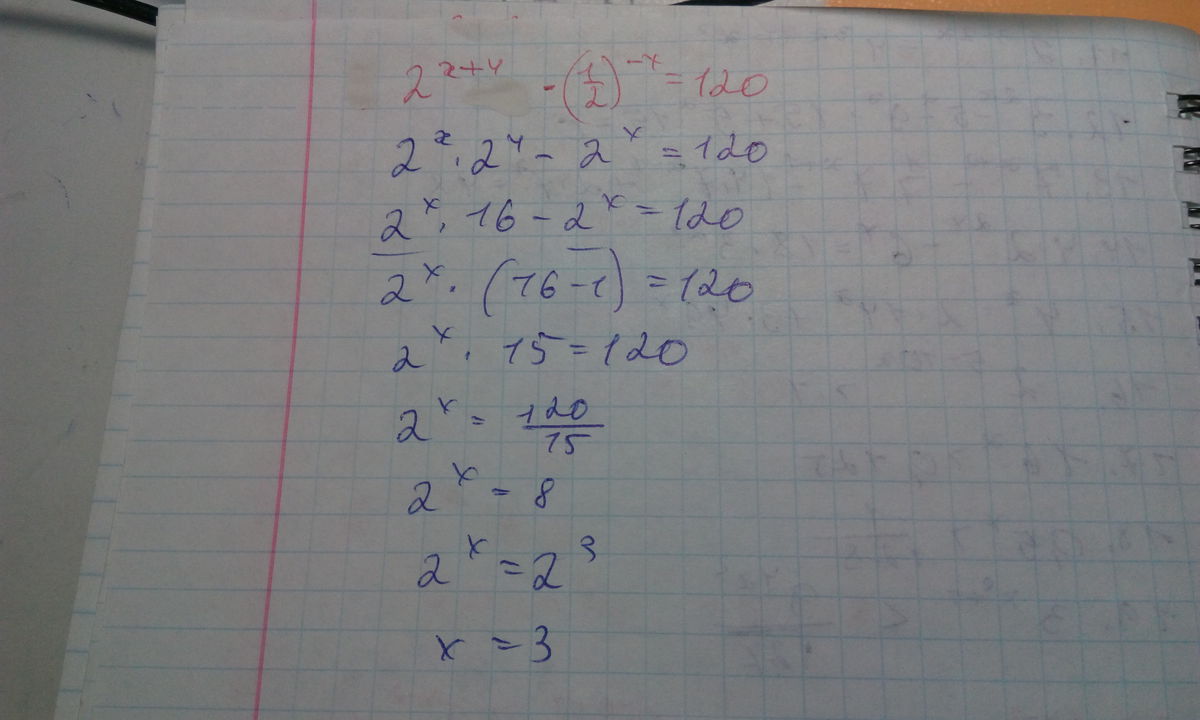 2^{x+4} - (1/2)^{-x} = 120
2^x · 2^4 - 2^x = 120
2^x · 16 - 2^x = 120
2^x · (16 - 1) = 120
2^x · 15 = 120
2^x = 120/15
2^x = 8
2^x = 2^3
x = 3